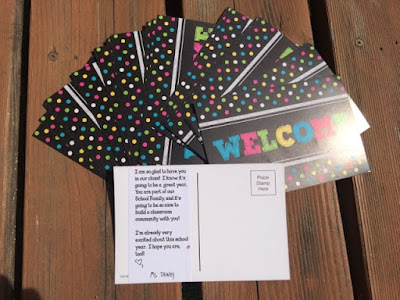 WELCOME
I am so glad to have you
in our class! I know it's
going to be a great year.
You are part of our
School Family, and it's
going to be so nice to
build a classroom
community with you!
I'm already very
excited about this school
year. I hope you are,
too!
Place
Stamp
Here